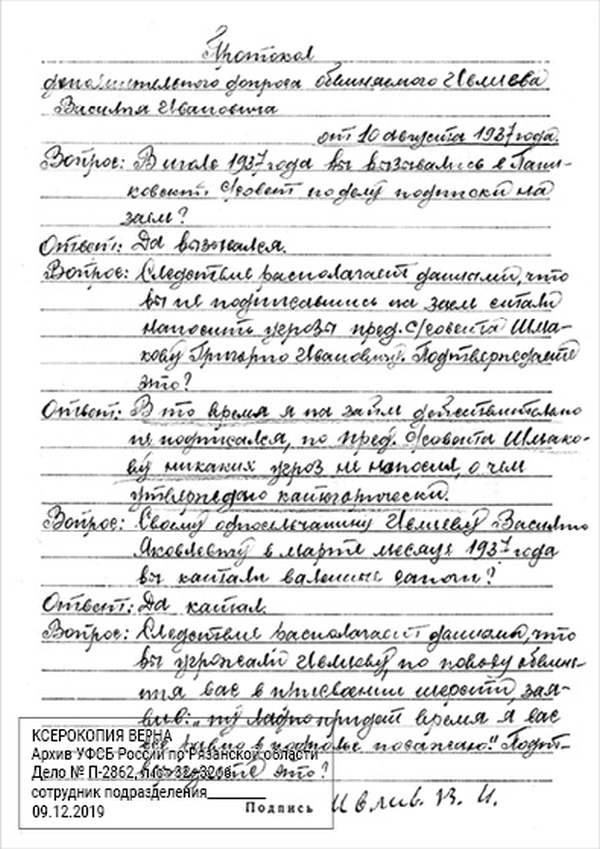 Протокол
дополнительного допроса обвиняемого Ивлиева
Василия Ивановича
от 10 августа 1937 года.
Вопрос: В июле 1937 года вы вызывались в
с/совет по делу подписки на
заем?
Ответ: Да вызывался.
Вопрос: Следствие располагает данными, что
вы не подписавшись на заем стали
наносить угрозы пред. с/совета Шма-
кову Григорию Ивановичу. Подтверждаете
это?
Ответ: В то время я на займ действительно
не подписался, но пред. с/совета Шмако-
ву никаких угроз не наносил, о чем
утверждаю категорически.
Вопрос: Своему односельчанину Ивлиеву Василию
Яковлевичу в марте месяце 1937 года
вы катали валенные сапоги?
Ответ: Да катал.
Вопрос: Следствие располагает данными, что
вы угрожали Ивлиеву, по поводу обвине-
ния вас в присвоении шерсти, зая-
вив: „ну ладно придет время я вас
все равно в подполье посажаю." Подт-
это?
КСЕРОКОПИЯ ВЕРНА
Архив УФСБ России по Рязанской области
Дело № П-2862,
сотрудник подразделения
09.12.2019
Подпись Ивлив. В. И.